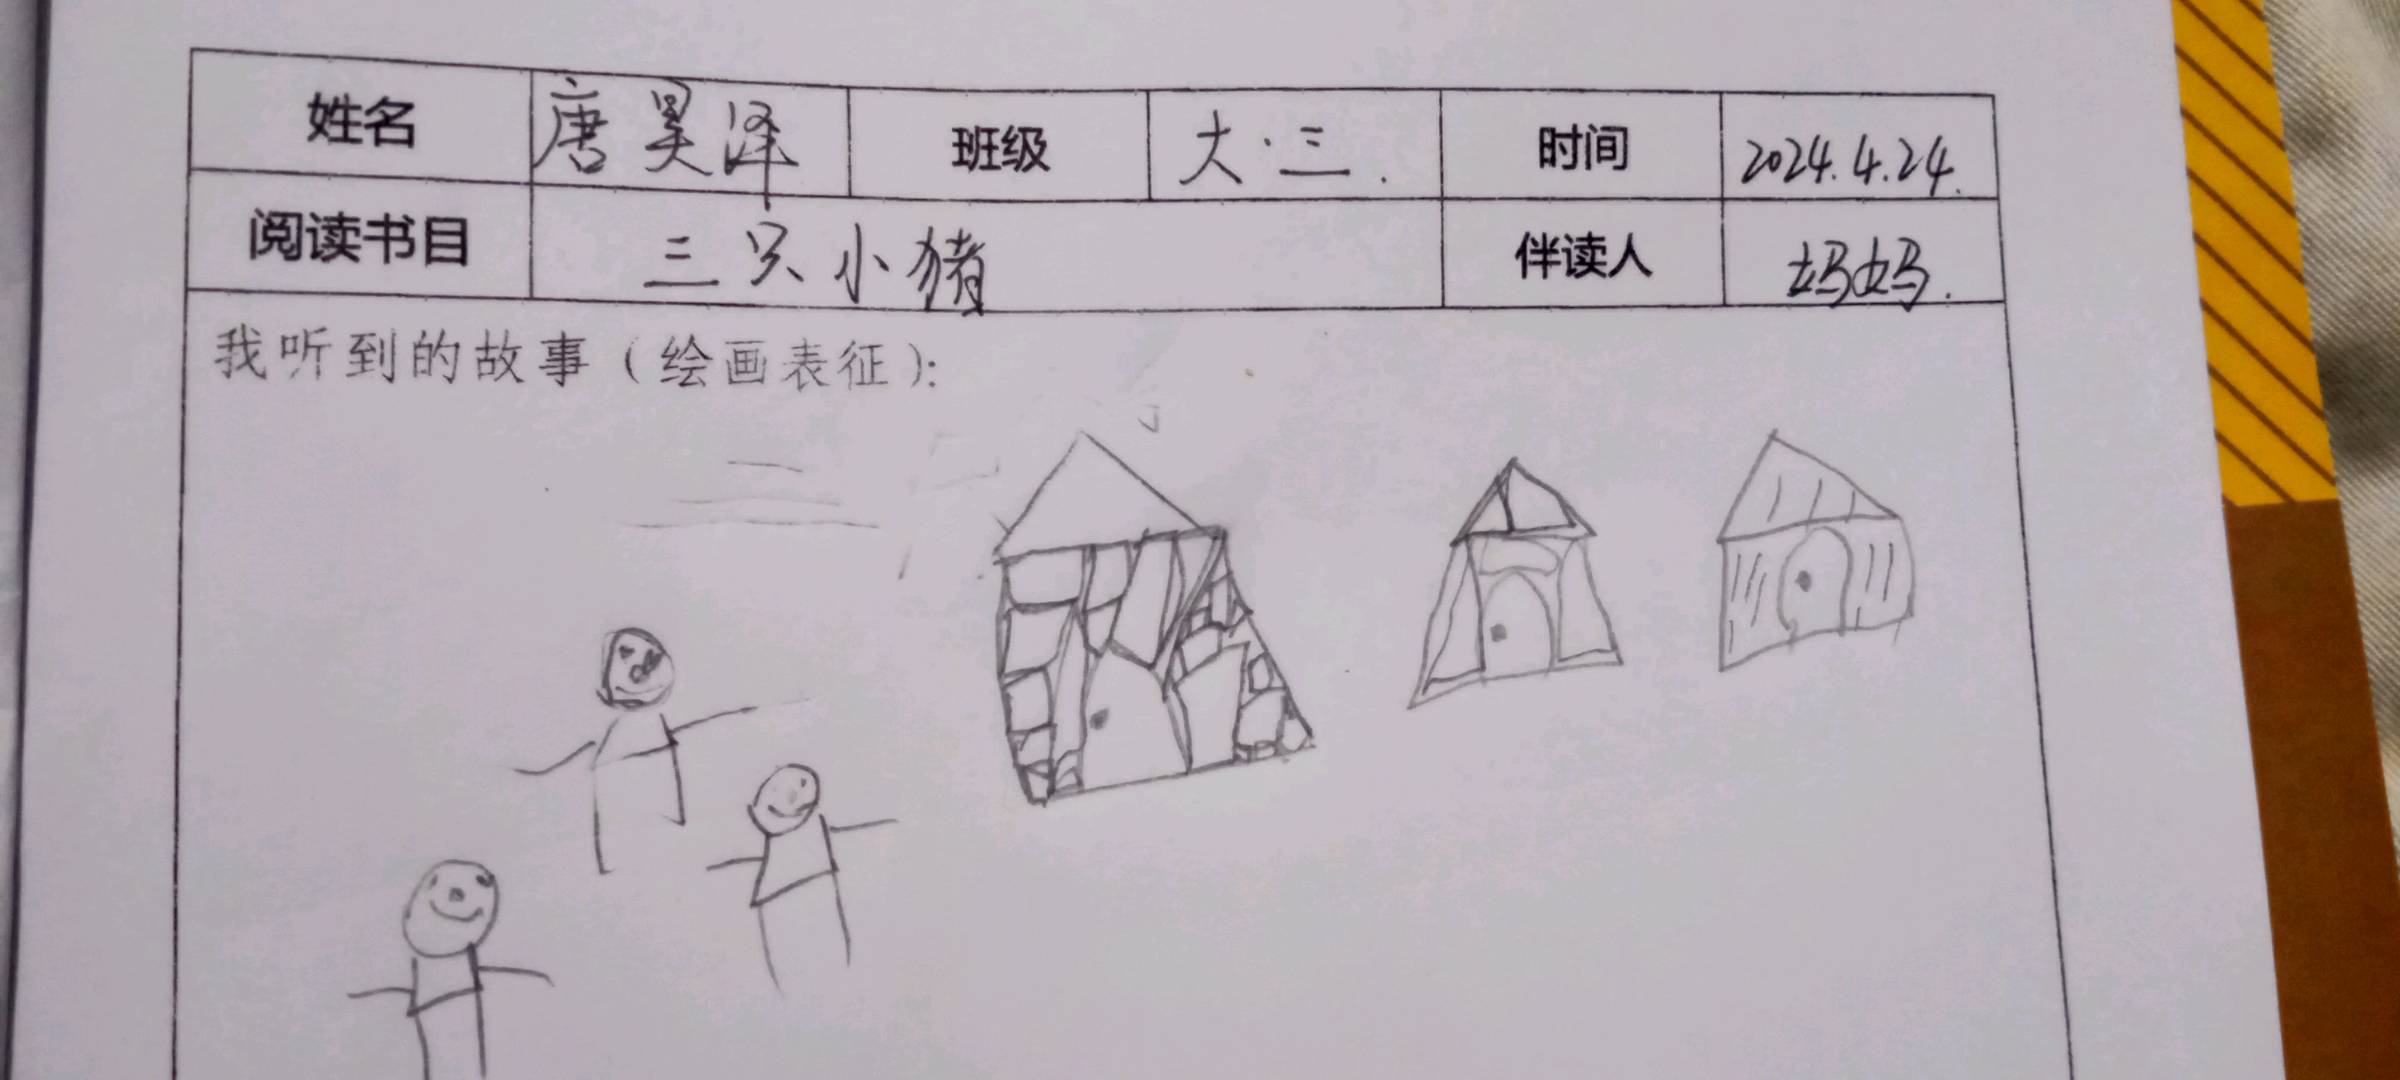 姓名 唐昊泽 班级 大·三. 时间 2024.4.24.
阅读书目 三只小猪 伴读人 妈妈.
我听到的故事（绘画表征）: